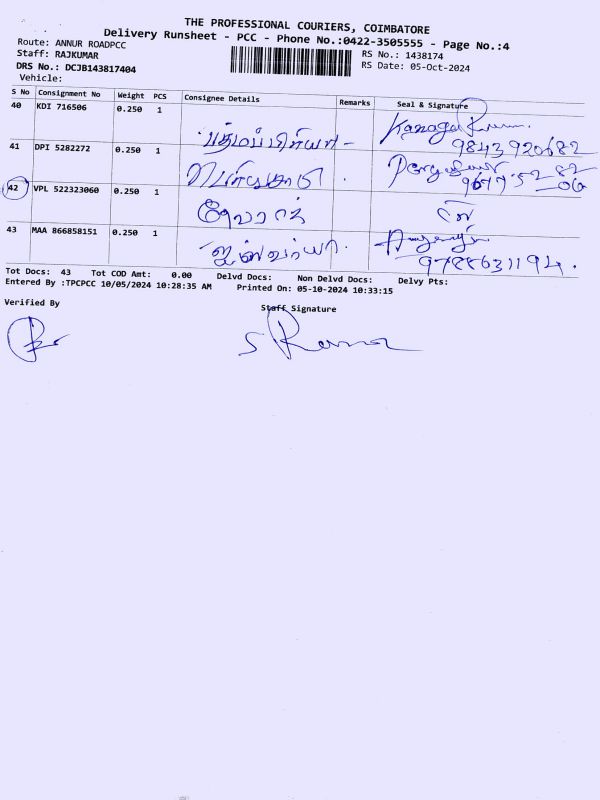 THE PROFESSIONAL COURIERS, COIMBATORE
Delivery Runsheet - PCC - Phone No.:0422-3505555 - Page No.:4
Route: ANNUR ROADPCC
RS No.: 1438174
Staff: RAJKUMAR
RS Date: 05-Oct-2024
DRS No.: DCJB143817404
Vehicle:
S No Consignment No Weight PCS Consignee Details Remarks Seal & Signature
40 KDI 716506 0.250 1 பத்மப்பிரியா - Kanaga
9843920682
41 DPI 5282272 0.250 1
42 VPL 522323060 0.250 1
43 MAA 866858151 0.250 1 ஐஸ்வர்யா.
9788631194.
Tot Docs: 43 Tot COD Amt: 0.00 Delvd Docs: Non Delvd Docs: Delvy Pts:
Entered By :TPCPCC 10/05/2024 10:28:35 AM Printed On: 05-10-2024 10:33:15
Verified By
Staff Signature